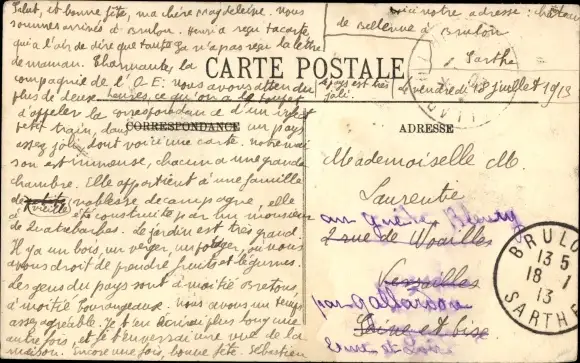 Salut, et bonne fête, ma chère Magdeleine. Nous
sommes arrivés à Brulon. Henri a reçu ta carte,
qui a l'air de dire que tante n'a pas reçu la lettre
de maman.
compagnie de l'O E: nous avons attendu
plus de deux heures, ce qu'on a le toupet
d'appeler la correspondance d'un
petit train, dans un pays
assez joli, dont voici une carte. Notre mai
son est immense, chacun a une grande
chambre. Elle appartient à une famille
de vieille noblesse de campagne, elle
a été construite par un monsieur
de Quatrebarbes. Le jardin est très grand.
Il y a un bois, un verger, un potager, où nous
avons droit de prendre fruits et légumes.
Les gens du pays sont à moitié Bretons
à moitié tourangeaux. Nous avons un temps
assez agréable. Je t'en écrirai plus long une
autre fois, et je t'enverrai une vue de la
maison. Encore une fois, bonne fête. Sébastien
le pays est très
joli.
Voici notre adresse: château
de Bellevue à Brulon
Sarthe
Le vendredi 18 juillet 1913
CARTE POSTALE
CORRESPONDANCE
ADRESSE
Mademoiselle M.
Laurentie
2 rue de Noailles
Versailles
par Gallardon
Seine et Oise
BRULON
13 5
18 - 7
13
SARTHE